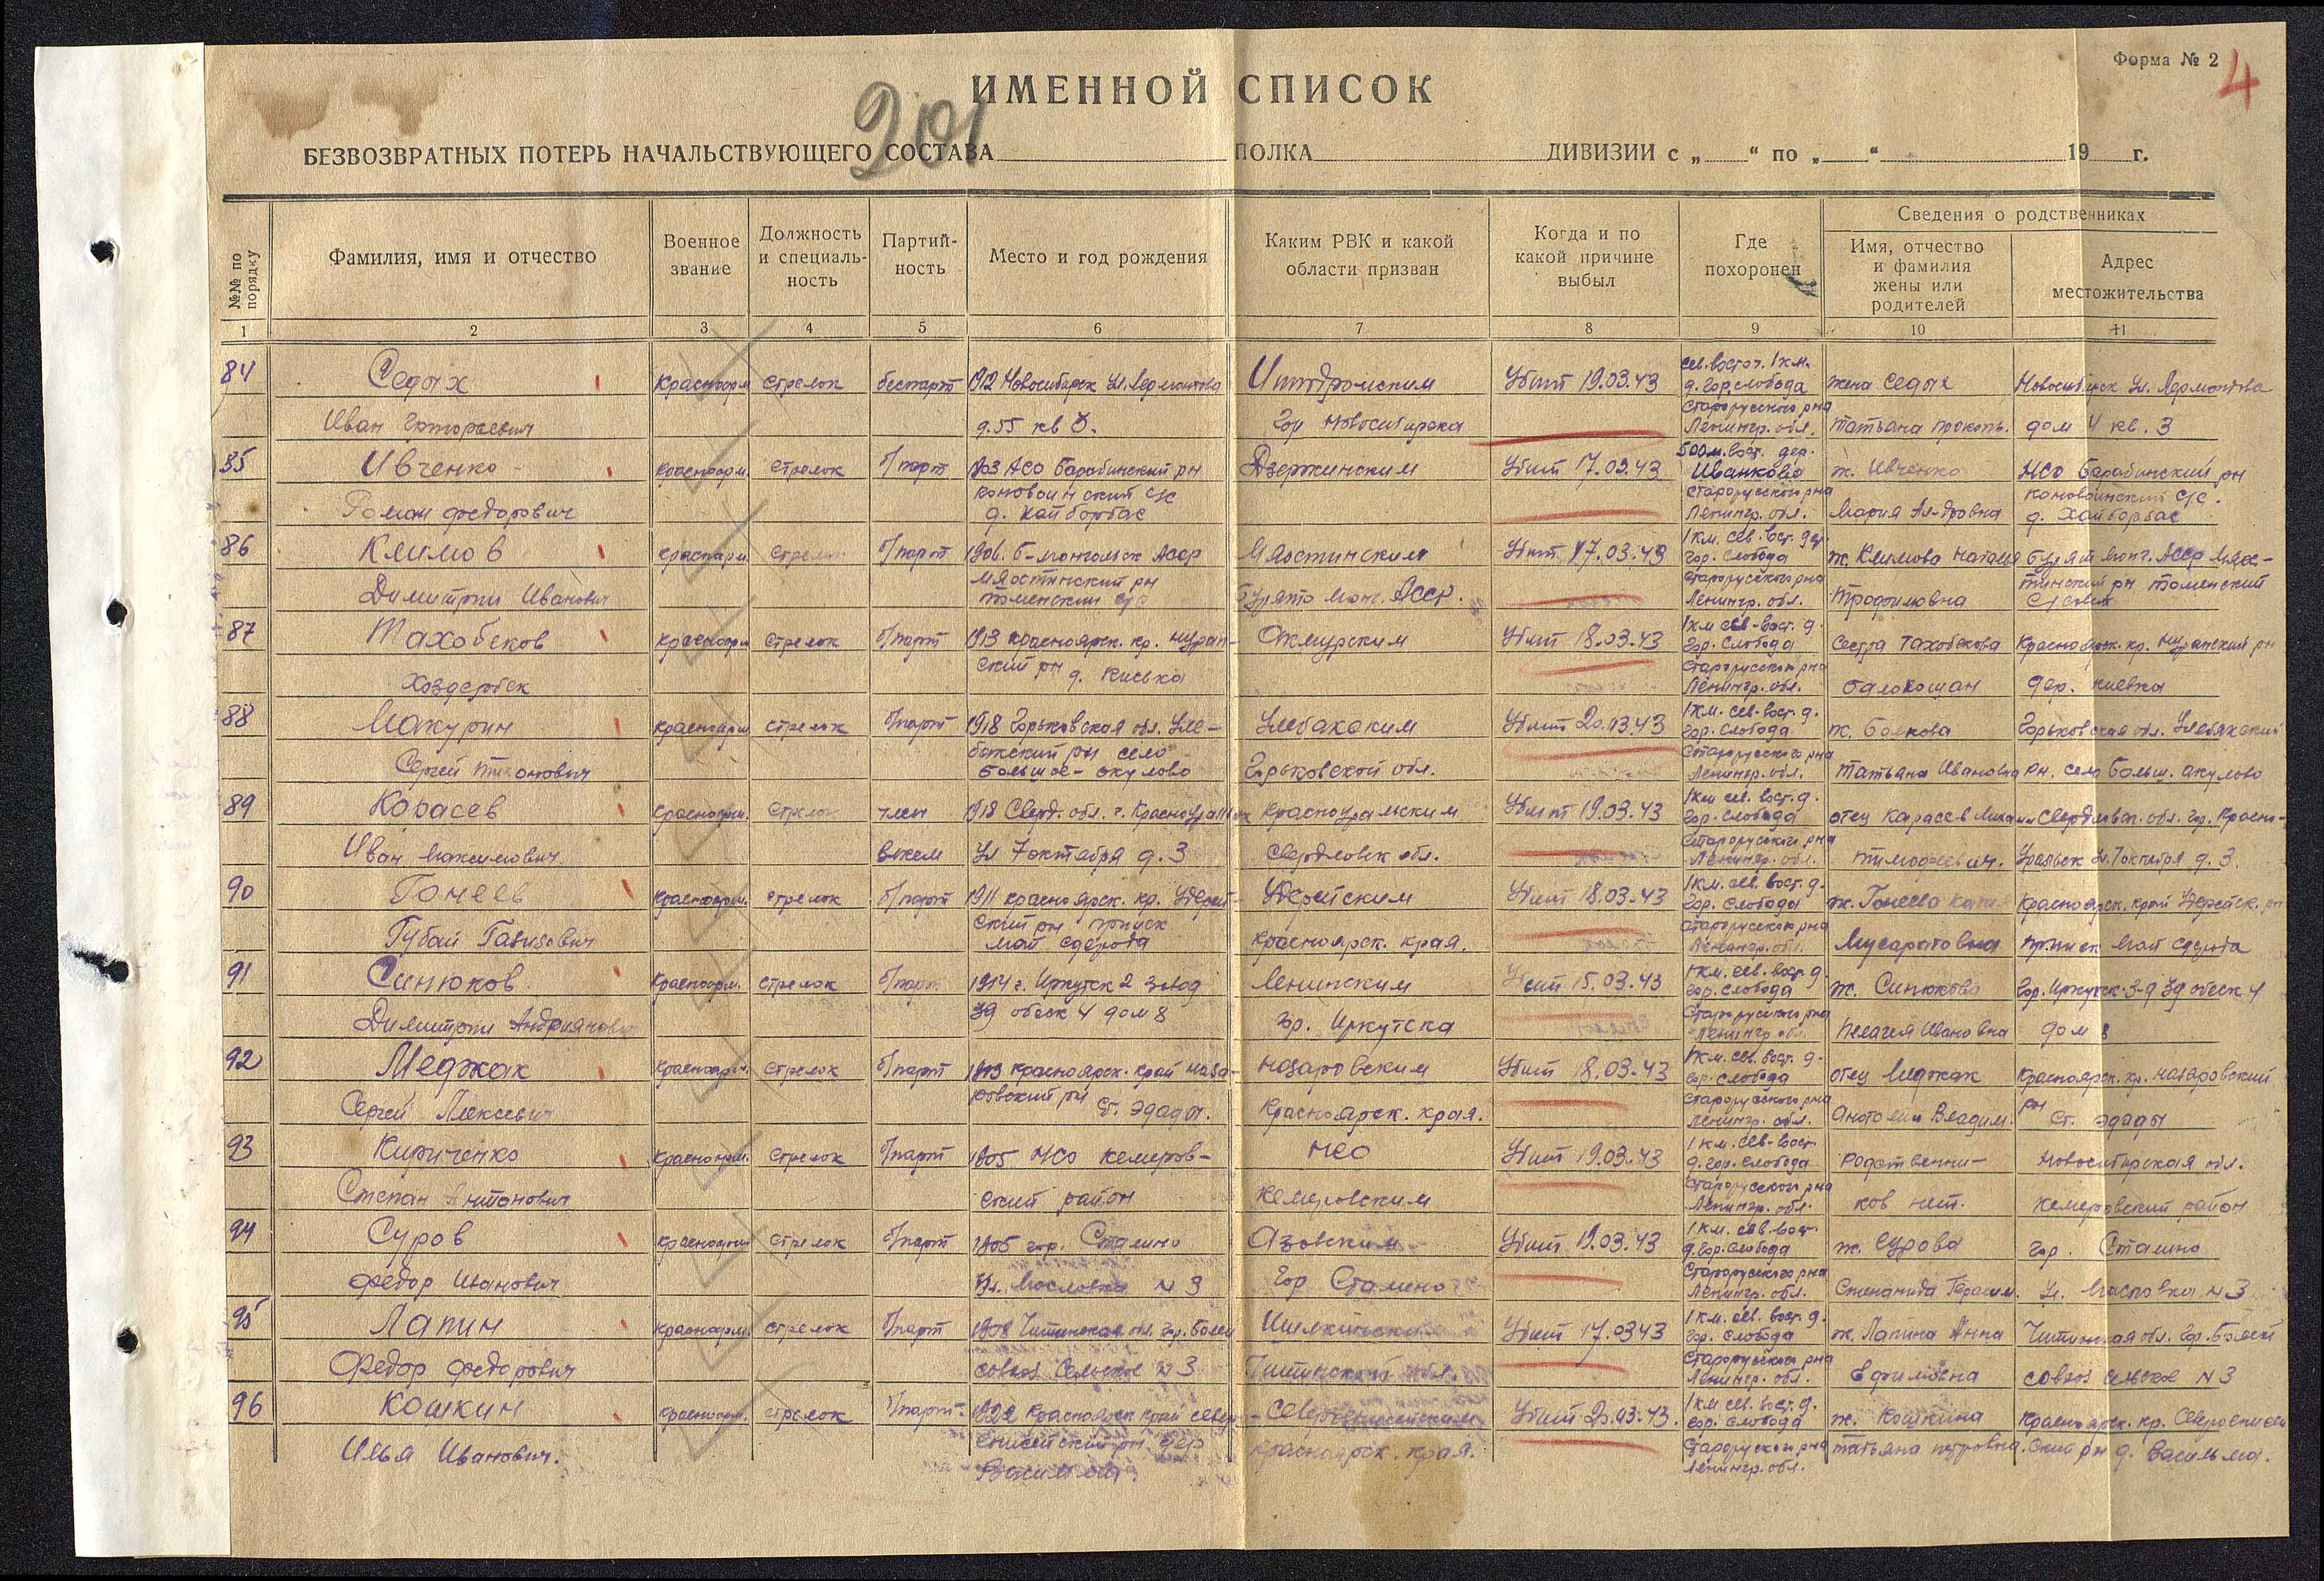 Форма № 2
4
ИМЕННОЙ СПИСОК
201
БЕЗВОЗВРАТНЫХ ПОТЕРЬ НАЧАЛЬСТВУЮЩЕГО СОСТАВА ПОЛКА ДИВИЗИИ с „ “ по „ “ 19 г.
№№ по порядку
Фамилия, имя и отчество
Военное звание
Должность и специаль-ность
Партий-ность
Место и год рождения
Каким РВК и какой области призван
Когда и по какой причине выбыл
Где похоронен
Сведения о родственниках
Имя, отчество и фамилия жены или родителей
Адрес местожительства
1 2 3 4 5 6 7 8 9 10 11
84 Седых красноарм стрелок беспарт 1912 Новосибирск ул. Лермонтова Убит 19.03.43 сев. вост. 1 км. д. Гор. слобода жена Седых Новосибирск ул. Лермонтова
Иван Григорьевич д. 55 кв 3. Гор Новосибирска Старорусского рна Ленингр. обл. Татьяна Прокопь. дом 4 кв. 3
85 Ивченко красноарм. стрелок б/парт НСО Барабинский рн Дзержинским Убит 17.03.43 500 м. вост. дер. Иванково ж. Ивченко НСО Барабинский рн
Роман Федорович с/с Старорусского рна Ленингр. обл. Мария с/с.
86 Климов красноарм. стрелок б/парт 1906. Б-монгольск Асср Убит 17.03.43 1 км. сев. вост. дер. Гор. Слобода ж. Климова
Димитрий Иванович рн с/с Бурято Монг. АССР. Старорусского рна Ленингр. обл. Трофимовна
87 Тахобеков красноарм стрелок б/парт 1913 Красноярск. кр. Убит 18.03.43 1 км сев-вост. д. Гор. Слобода Сестра Тахобекова Красноярск. кр. рн
ский рн д. Киевка Старорусского рна Ленингр. обл. дер. Киевка
88 Макурин красноарм стрелок б/парт 1918 Горьковская обл. Убит 20.03.43 1 км. сев. вост. д. Гор. Слобода ж. Горьковская обл.
Сергей рн село Больше-окулово Горьковской обл. Старорусского рна Ленингр. обл. Татьяна Ивановна рн. село Больш. окулово
89 Карасев красноарм. стрелок член 1918 Сверд. обл. г. Красноуральск Красноуральским Убит 19.03.43 1 км сев. вост. д. Гор. Слобода отец Карасев Свердловск. обл. гор. Красно-
Иван Максимович. ул 7 октября д. 3 Свердловск обл. Старорусского рна Ленингр. обл. Тимофеевич. Уральск ул. 7 октября д. 3.
90 Гонеев красноарм. стрелок б/парт 1911 Красноярск. кр. Удерей- Удерейским Убит 18.03.43 1 км. сев. вост. д. Гор. Слобода ж. Красноярск. край Удерейск. рн
Губай ский рн прииск Красноярск. края. Старорусского рна Ленингр. обл. прииск
91 Синюков красноарм. стрелок б/парт 1914 г. Иркутск 2 завод Ленинским Убит 15.03.43 1 км. сев. вост. д. Гор. Слобода ж. Синюкова Гор. Иркутск
Димитрий 39 4 дом 8 гр. Иркутска Старорусского рна Ленингр. обл. Пелагея Ивановна дом 8
92 Меджак красноарм. стрелок б/парт Красноярск. край Наза- Назаровским Убит 18.03.43 1 км. сев. вост. д. Гор. Слобода отец Меджак Красноярск. кр. Назаровский
Сергей ровский рн ст. Эдады. Красноярск. края. Старорусского рна Ленингр. обл. Владим. рн ст. Эдады
93 Кириченко красноарм. стрелок б/парт 1905 НСО Кемеров- НСО Убит 19.03.43 1 км. сев-вост. д. Гор. Слобода Родственни- Новосибирская обл.
Степан Антонович ский район Кемеровским Старорусского рна Ленингр. обл. ков нет. Кемеровский район
94 Суров красноарм стрелок б/парт 1905 гор. Сталино Азовским Убит 19.03.43 1 км. сев-вост. д. Гор. Слобода ж. Сурова гор. Сталино
Федор Иванович ул. Масловка N 3 Гор Сталино Старорусского рна Ленингр. обл. Степанида Герасим. ул. Масловка N 3
95 Лапин красноарм. стрелок б/парт 1908 Читинская обл. гор. Балей Убит 17.03.43 1 км. сев. вост. д. Гор. Слобода ж. Лапина Анна Читинская обл. Гор. Балей
Федор Федорович совхоз N 3 Читинской обл. Старорусского рна Ленингр. обл. Ефимовна совхоз N 3
96 Кошкин красноарм. стрелок б/парт. Красноярск край Убит 20.03.43. 1 км сев. вост. д. Гор. Слобода ж. Кошкина Красноярск. кр.
Илья Иванович. енисейский рн. дер Красноярск. края. Старорусского рна Ленингр. обл. Татьяна Петровна. ский рн д.